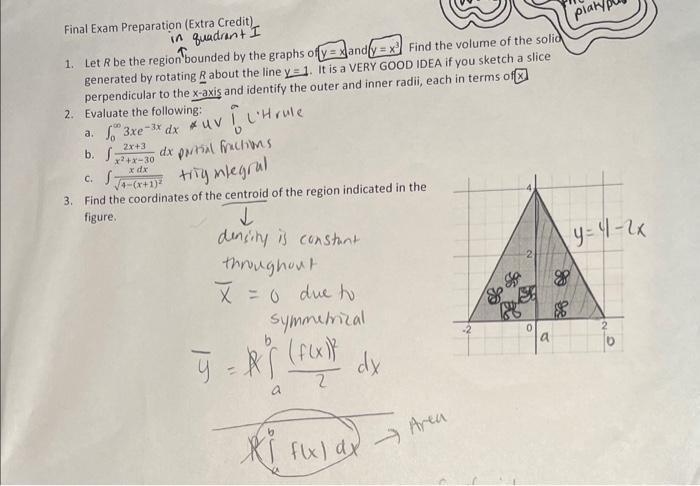 Final Exam Preparation (Extra Credit)
in quadrant I
platypus
1. Let R be the region bounded by the graphs of y = x and y = x³. Find the volume of the solid
generated by rotating R about the line y = 1. It is a VERY GOOD IDEA if you sketch a slice
perpendicular to the x-axis and identify the outer and inner radii, each in terms of x
2. Evaluate the following:
a. ∫₀^∞ 3xe^(−3x) dx * uv ∫ₐᵇ L'H rule
b. ∫ (2x+3)/(x²+x−30) dx partial fractions
c. ∫ x dx/√(4−(x+1)²) trig integral
3. Find the coordinates of the centroid of the region indicated in the
figure.
density is constant
throughout
x̄ = 0 due to
symmetrical
ȳ = k ∫ₐᵇ (f(x))²/2 dx
k ∫ₐᵇ f(x) dx → Area
4
y = 4 - 2x
2
-2 0 2
a b